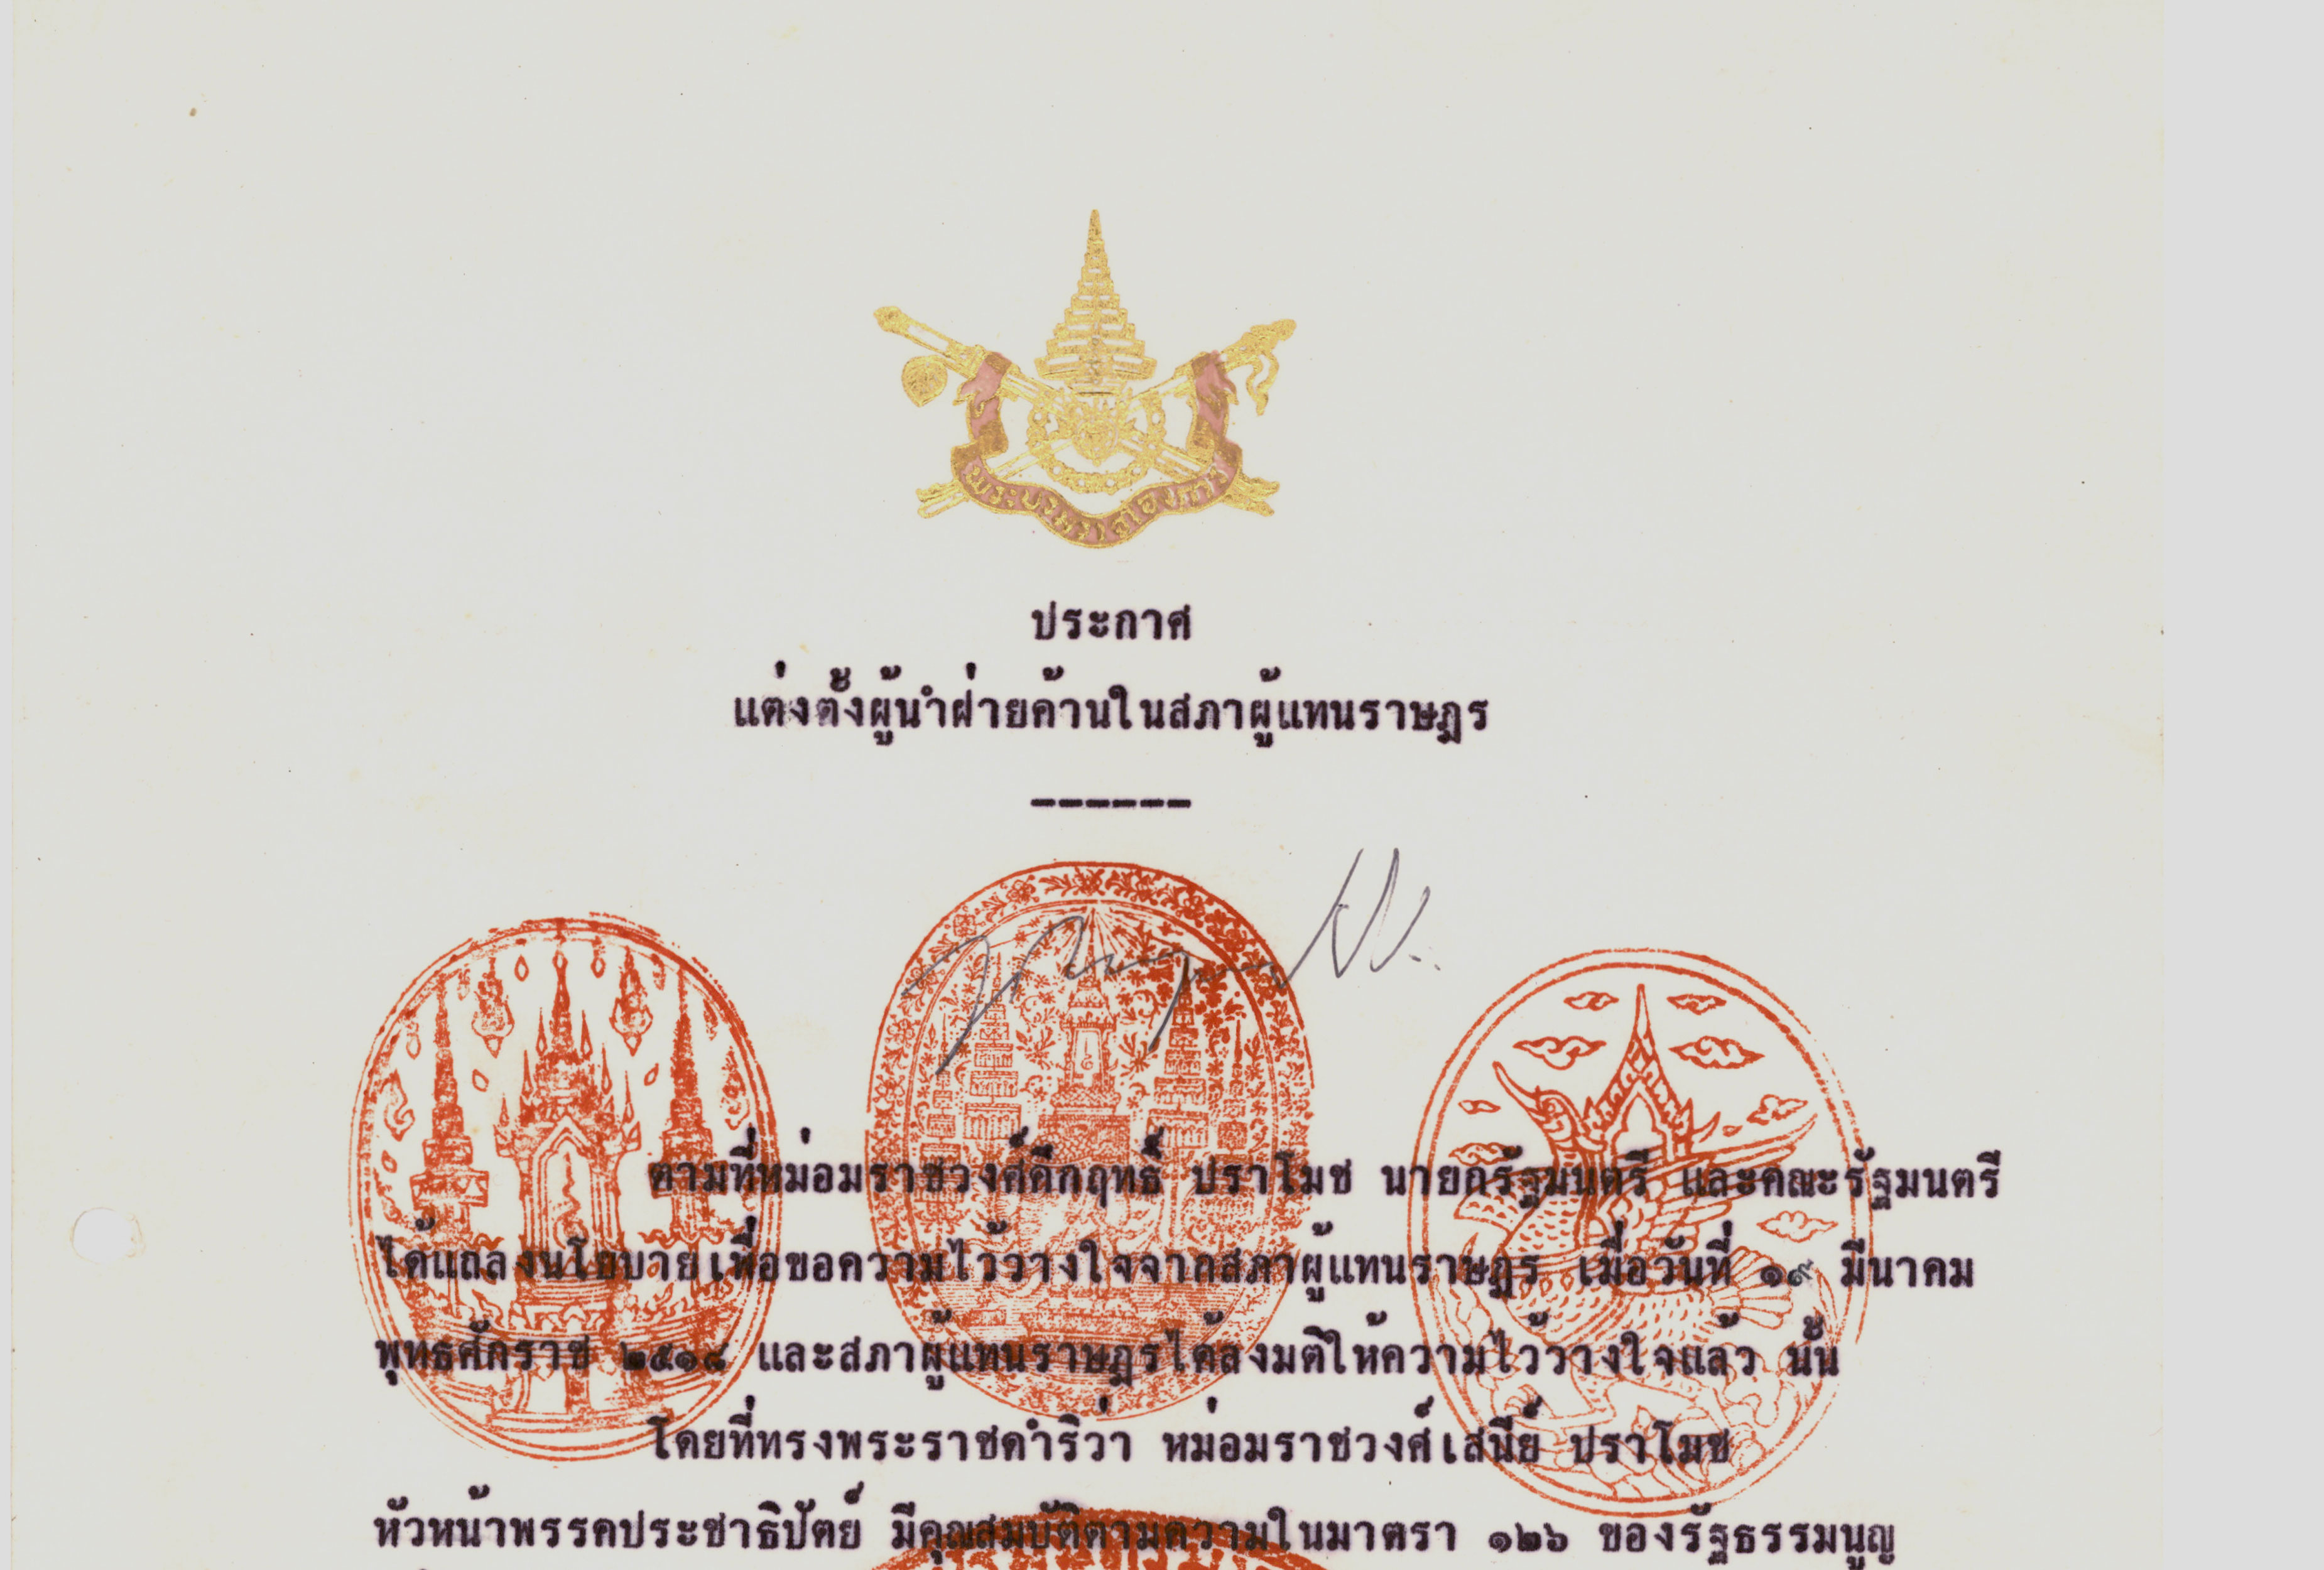 พระบรมราชโองการ
ประกาศ
แต่งตั้งผู้นำฝ่ายค้านในสภาผู้แทนราษฎร
------
ตามที่หม่อมราชวงศ์คึกฤทธิ์ ปราโมช นายกรัฐมนตรี และคณะรัฐมนตรี
ได้แถลงนโยบายเพื่อขอความไว้วางใจจากสภาผู้แทนราษฎร เมื่อวันที่ ๑๙ มีนาคม
พุทธศักราช ๒๕๑๘ และสภาผู้แทนราษฎรได้ลงมติให้ความไว้วางใจแล้ว นั้น
โดยที่ทรงพระราชดำริว่า หม่อมราชวงศ์เสนีย์ ปราโมช
หัวหน้าพรรคประชาธิปัตย์ มีคุณสมบัติตามความในมาตรา ๑๒๖ ของรัฐธรรมนูญ